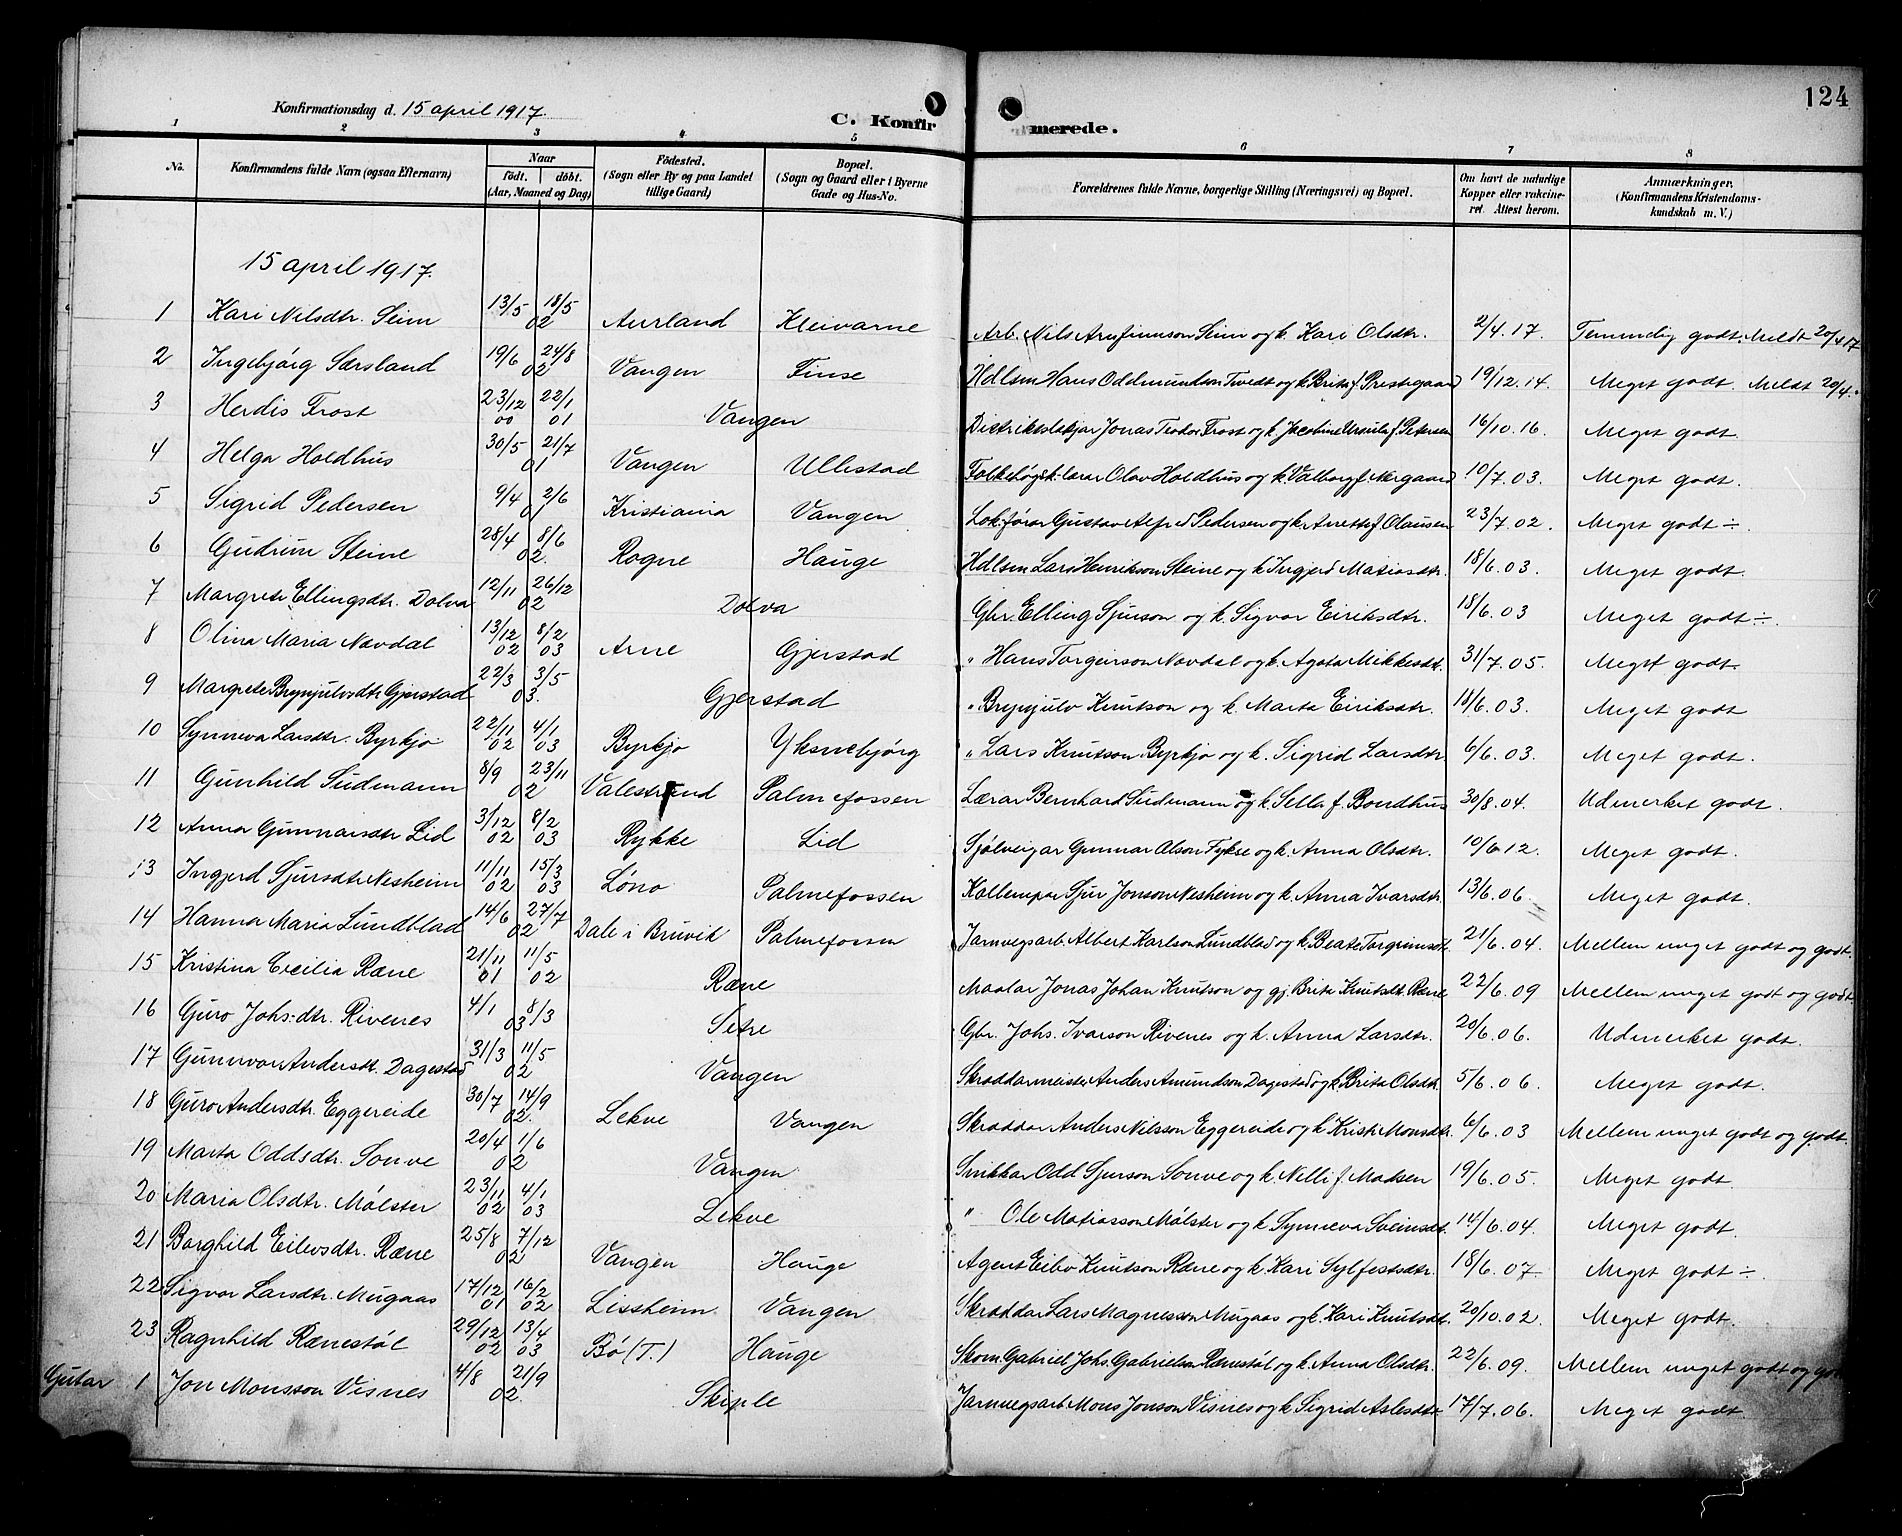 124
Konfirmationsdag d. 15 april 1917
C. Konfirmerede.
1 2 3 4 5 6 7 8
No. Konfirmandens fulde Navn (ogsaa Efternavn) Naar født. døbt. (Aar, Maaned og Dag) Fødested. (Sogn eller By og paa Landet tillige Gaard) Bopæl. (Sogn og Gaard eller i Byerne Gade og Hus-No. Forældrenes fulde Navne, borgerlige Stilling (Næringsvei) og Bopæl. Om havt de naturlige Kopper eller vakcineret. Attest herom. Anmærkninger. (Konfirmandens Kristendomskundskab m. V.)
15 april 1917.
1 Kari Nilsdtr. Seim 13/5 18/5 02 Aurland Kleivarne Arb. Nils Arnfinnson Seim og k. Kari Olsdtr. 2/4.17. Temmelig godt. Meldt 20/4 17
2 Ingebjörg Særsland 19/6 24/8 02 Vangen Finse Hdlsm Hans Oddmundson Tvedt og k. Brita f. Prestegaard 19/12.14. Meget godt. Meldt 20/4.
3 Herdis Frost 23/12 00 22/1 01 Vangen Distriktslækjar Jonas Teodor Frost og k. Jacobine Ursula f. Petersen 16/10.16. Meget godt.
4 Helga Holdhus 30/5 21/7 01 Vangen Ullestad Folkehögsk.lærar Olav Holdhus og k. Valborg f. Nergaard 10/7.03. Meget godt.
5 Sigrid Pedersen 9/4 2/6 01 Kristiania Vangen Lok.förar Gustav Alfred Pedersen og k. Anette f. Olausen 23/7.02. Meget godt ÷.
6 Gudrun Steine 28/4 8/6 02. Rogne Hauge Hdlsm Lars Henrikson Steine og k. Ingjerd Matiasdtr. 18/6.03. Meget godt.
7 Margrete Ellingsdtr. Dolva 12/11 26/12 02 Dolva Gbr. Elling Sjurson og k. Sigvor Eiriksdtr. 18/6.03 Meget godt ÷.
8 Olina Maria Navdal 13/12 02 8/2 03 Arne Gjerstad " Hans Torgeirson Navdal og k. Agata Mikkelsdt. 31/7.05. Meget godt.
9 Margrete Brynjulvsdtr Gjerstad 22/3 3/5 03. Gjerstad " Brynjulv Knutson og k. Marta Eiriksdtr. 11/6.03. Meget godt
10 Synneva Larsdtr. Byrkjo 22/11 02 4/1 03 Byrkjo Yksnebjørg " Lars Knutson Byrkjo og k. Sigrid Larsdtr 6/6.03. Meget godt.
11 Gunhild Sudmann 8/9 23/11 02 Valestrand Palmefossen Lærar Bernhard Sudmann og k. Sella f. Bondhus 30/8.04. Udmerket godt.
12 Anna Gunnarsdtr Lid 3/12 02 8/2 03 Rykke Lid Sjølveigar Gunnar Olson Fykse og k. Anna Olsdtr. 10/6.12. Meget godt.
13 Ingjerd Sjursdtr Nesheim 11/11 02 15/3 03 Lønø Palmefossen Sjur Jonson Nesheim og k. Anna Ivarsdtr 13/6.06. Meget godt.
14 Hanna Maria Lundblad 14/6 27/7 02 Dale i Bruvik Palmefossen Jarnvegsarb. Albert Karlson Lundblad og k. Beate Torgrimsdt. 21/6.04. Mellem meget godt og godt.
15 Kristina Cecilia Ræne 21/11 01 11/5 02 Ræne Maalar Jonas Johan Knutson og gj. Brita Knutsdt. Ræne 22/6.09 Mellem meget godt og godt.
16 Guro Johs.dtr. Rivenes 4/1 8/3 03 Setre Gbr. Johs. Ivarson Rivenes og k. Anna Larsdtr. 20/6.06. Udmerket godt.
17 Gunnvor Andersdt. Dagestad 31/3 11/5 02 Vangen Skræddarmeister Anders Amundson Dagestad og k. Brita Olsdtr. 5/6.06. Meget godt.
18 Guro Andersdtr. Eggereide 30/7 14/9 02. Lekve Vangen Skræddar Anders Nilsson Eggereide og k. Kristi Monsdtr. 6/6.03 Mellem meget godt og godt.
19 Marta Oddsdtr. Sonve 20/4 1/6 02 Vangen Snikkar Odd Sjurson Sonve og k. Nelli f. Madsen 19/6.05. Meget godt.
20 Maria Olsdtr. Mølster 23/11 02 4/1 03 Lekve " Ole Matiasson Mølster og k. Synneva Sveinsdt. 14/6.04. Meget godt.
21 Borghild Eilevsdtr. Ræne 25/8 7/12 02 Vangen Hauge Agent Eilev Knutson Ræne og k. Kari Sylfestsdtr. 18/6.07. Meget godt ÷.
22 Sigvor Larsdtr. Mugaas 17/12 01 16/2 02 Lissheim Vangen Skræddar Lars Magnesson Mugaas og k. Kari Knutsdt. 20/10.02. Meget godt.
23 Ragnhild Rænestøl 29/12 02 13/4 03 Bø (T.) Hauge Skom. Gabriel Johs. Gabrielsen Rænestøl og k. Anna Olsdtr. 22/6.09. Mellem meget godt og
Gutar 1 Jon Monsson Visnes 4/8 21/9 02. Skiple Jarnvegsarb. Mons Jonson Visnes og k. Sigrid Aslesdtr. 17/7.06. Meget godt.